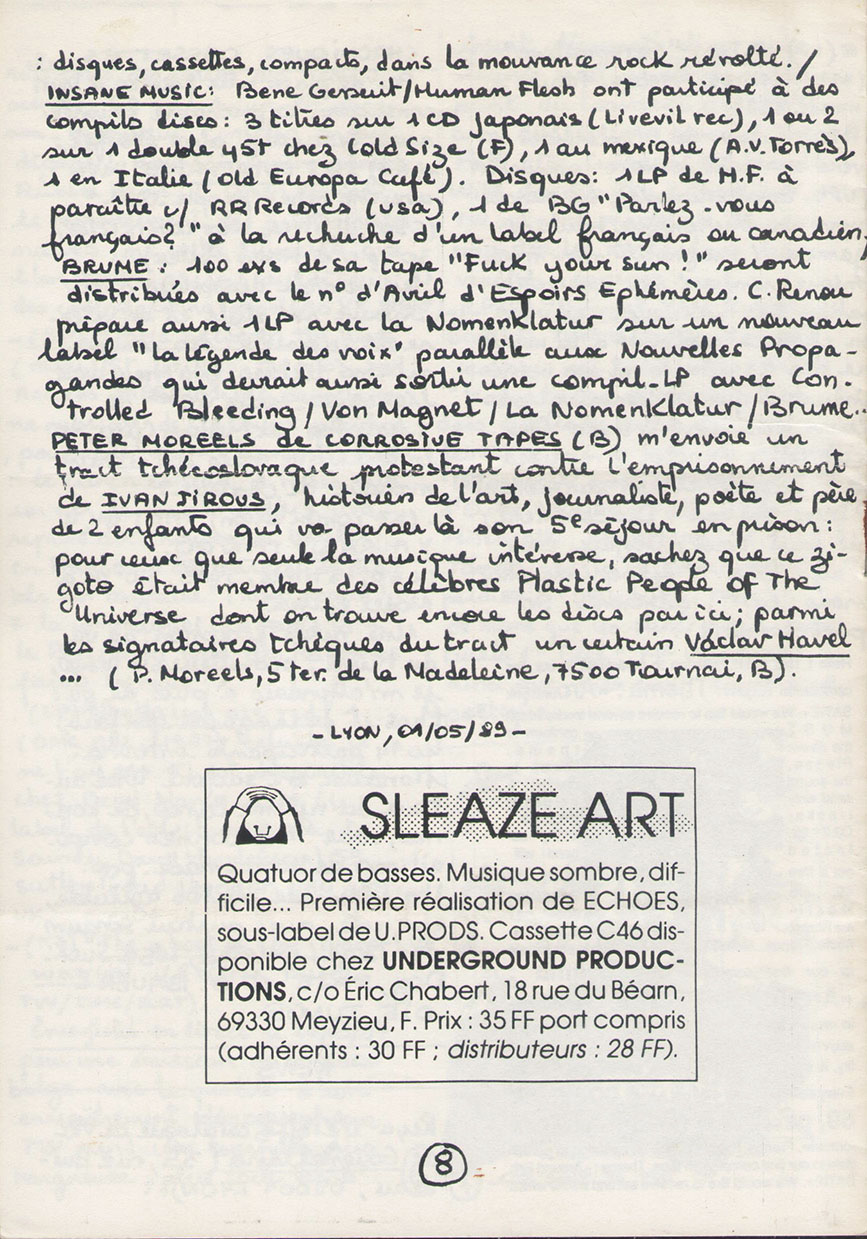 : disques, cassettes, compacts, dans la mouvance rock révolté. /
INSANE MUSIC : Bene Gesseuit / Human Flesh ont participé à des
compils discs : 3 titres sur 1 CD japonais (Livevil rec), 1 ou 2
sur 1 double 45t chez Cold Size (F), 1 au mexique (A.V. Torrès),
1 en Italie (old Europa Café). Disques : 1LP de H.F. à
paraître c/ RRRecords (usa), 1 de BG "Parlez-vous
français?" à la recherche d'un label français ou canadien/
BRUME : 100 exs de sa tape "Fuck your sun !" seront
distribués avec le n° d'Avril d'Espoirs Ephémères. C. Renou
prépare aussi 1LP avec la Nomenklatur sur un nouveau
label "la légende des voix" parallèle aux Nouvelles Propa-
gandes qui devrait aussi sortir une compil-LP avec Con-
trolled Bleeding / Von Magnet / La Nomenklatur / Brume..
PETER MOREELS de CORROSIVE TAPES (B) m'envoie un
tract tchécoslovaque protestant contre l'emprisonnement
de IVAN JIROUS, historien de l'art, journaliste, poète et père
de 2 enfants qui va passer là son 5e séjour en prison :
pour ceux que seule la musique intéresse, sachez que ce zi-
goto était membre des célèbres Plastic People of The
Universe dont on trouve encore les discs par ici ; parmi
les signataires tchèques du tract un certain Václav Havel
... (P. Moreels, 5 ter. de la Madeleine, 7500 Tournai, B).
- LYON, 01/05/89 -
SLEAZE ART
Quatuor de basses. Musique sombre, dif-
ficile... Première réalisation de ECHOES,
sous-label de U.PRODS. Cassette C46 dis-
ponible chez UNDERGROUND PRODUC-
TIONS, c/o Éric Chabert, 18 rue du Béarn,
69330 Meyzieu, F. Prix : 35 FF port compris
(adhérents : 30 FF ; distributeurs : 28 FF).
8